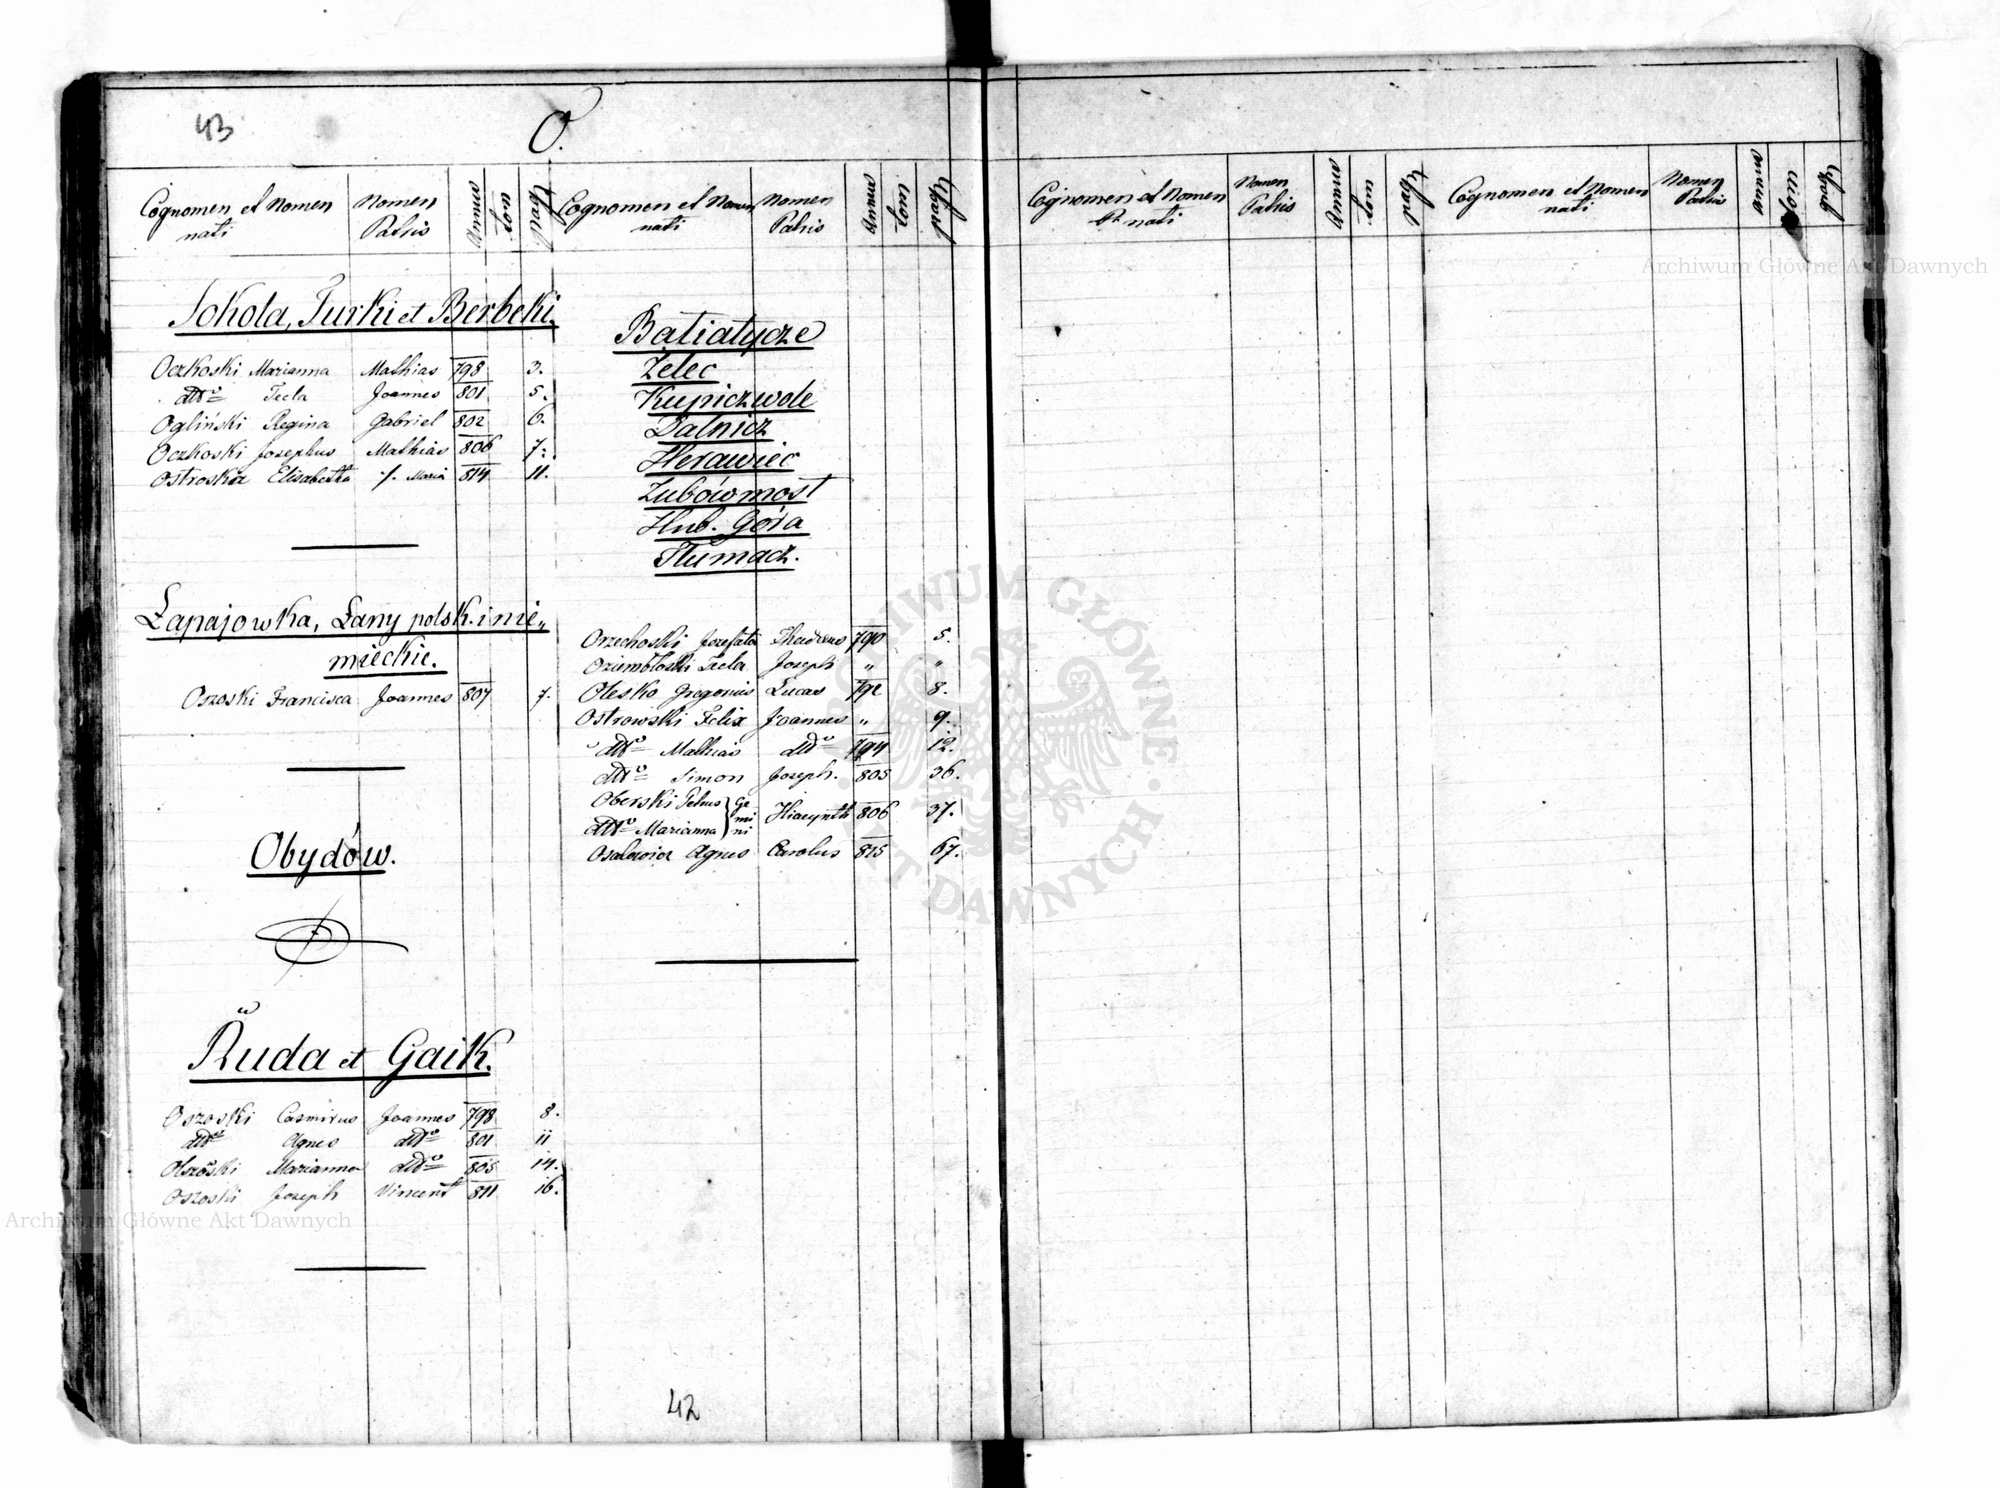 43
O.
Cognomen et Nomen nati
Nomen Patris
Annus
Tom.
Pag.
Cognomen et Nomen nati
Nomen Patris
Annus
Tom.
Pag.
Sokola, Turki et Berbeki.
Oczkoski Marianna Mathias 798 3.
dtto Tecla Joannes 801 5.
Ogliński Regina Gabriel 802 6.
Oczkoski Josephus Mathias 806 7.
Ostroska Elisabetha f. Maria 814 11.
Łapajowka, Łany polsk. i nie„
mieckie.
Oszoski Francisca Joannes 807 7.
Obydów.
Ruda et Gaik.
Oszoski Casmirus Joannes 798 8.
dtto Agnes dtto 801 11
Olszoski Marianna dtto 805 14.
Oszoski Joseph Vincent 811 16.
Batiatycze
Żelec
Kupiczwole
Dalnicz
Herawiec
Zubówmost
Hub. Góra
Tłumacz.
Orzechoski Jozefata Thadeus 790 5.
Oziembloski Tecla Joseph „ „
Olesko Gregorius Lucas 792 8.
Ostrowski Felix Joannes „ 9.
dtto Mathias dtto 794 12.
dtto Simon Joseph. 805 36.
Oberski Petrus } Ge
mi
ni Hiacynth 806 37.
dtto Marianna
Agnes Carolus 815 67.
42
Cognomen et Nomen nati
Nomen Patris
Annus
Tom
Pag
Cognomen et Nomen nati
Nomen Patris
Annus
Archiwum Główne Akt Dawnych
ARCHIWUM GŁÓWNE AKT DAWNYCH
Archiwum Główne Akt Dawnych